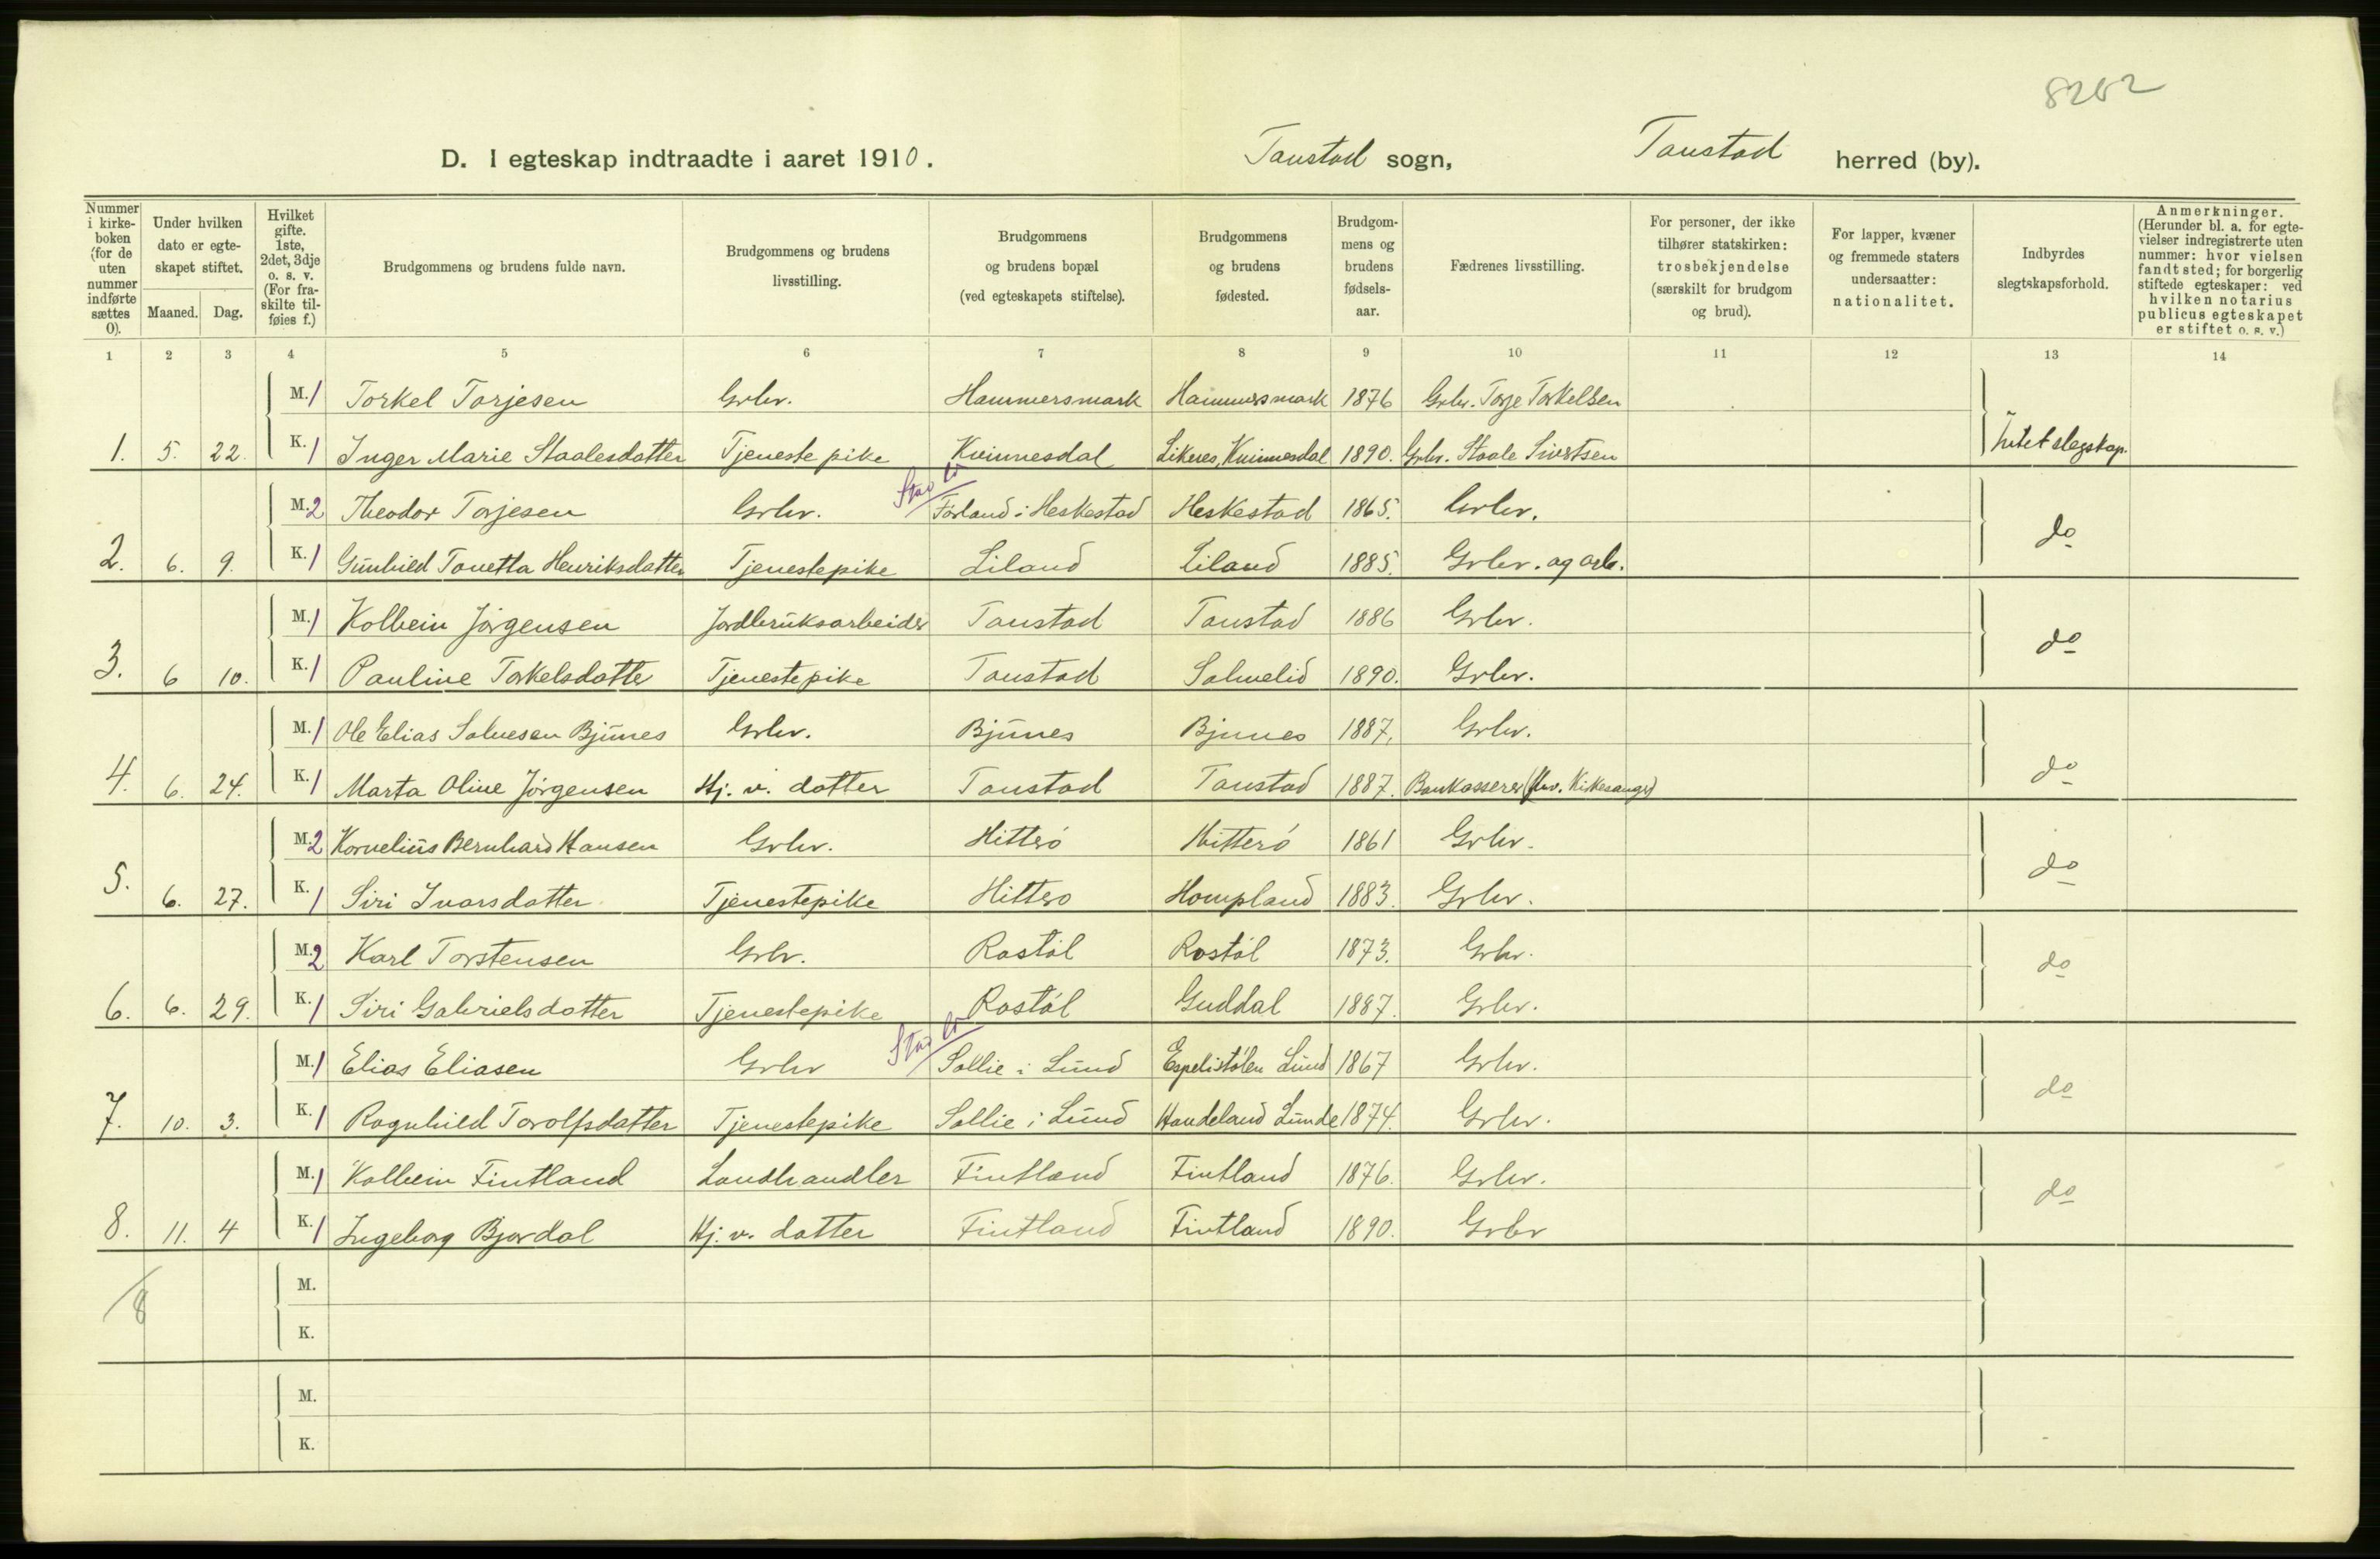 8282
D. I egteskap indtraadte i aaret 1910. Tonstad sogn, Tonstad herred (by).
Nummer i kirke-boken (for de uten nummer indførte sættes 0).
Under hvilken dato er egte-skapet stiftet.
Maaned. Dag.
Hvilket gifte. 1ste, 2det, 3dje o. s. v. (For fra-skilte til-føies f.)
Brudgommens og brudens fulde navn.
Brudgommens og brudens livsstilling.
Brudgommens og brudens bopæl (ved egteskapets stiftelse).
Brudgommens og brudens fødested.
Brudgom-mens og brudens fødsels-aar.
Fædrenes livsstilling.
For personer, der ikke tilhører statskirken: trosbekjendelse (særskilt for brudgom og brud).
For lapper, kvæner og fremmede staters undersaatter: nationalitet.
Indbyrdes slegtskapsforhold.
Anmerkninger. (Herunder bl. a. for egte-vielser indregistrerte uten nummer: hvor vielsen fandt sted; for borgerlig stiftede egteskaper: ved hvilken notarius publicus egteskapet er stiftet o. s. v.)
1 2 3 4 5 6 7 8 9 10 11 12 13 14
M. 1 Torkel Torjesen Grbr. Hammersmark Hammersmark 1876 Grbr. Torje Torkelsen
1. 5. 22. K. 1 Inger Marie Staalesdatter Tjenestepike Kvinnesdal Liknes, Kvinnesdal 1890. Grbr. Staale Sivertsen Intet slegskap.
M. 2 Theodor Torjesen Grbr. Förland i Heskestad Heskestad 1865. Grbr.
2. 6. 9. K. 1 Gunhild Tonetta Henriksdatter Tjenestepike Liland Liland 1885. Grbr. og arb. do
M. 1 Kolbein Jørgensen Jordbruksarbeider Tonstad Tonstad 1886 Grbr.
3. 6 10. K. 1 Pauline Torkelsdatter Tjenestepike Tonstad Solmelid 1890. Grbr. do
M. 1 Ole Elias Salvesen Bjunes Grbr. Bjunes Bjunes 1887. Grbr.
4. 6. 24. K. 1 Marta Oline Jørgensen Hj. v. datter Tonstad Tonstad 1887. Bankasserer (fhv. Kirkesanger) do
M. 2 Kornelius Bernhard Hansen Grbr. Hitterö Hitterö 1861 Grbr.
5. 6. 27. K. 1 Siri Ivarsdatter Tjenestepike Hittero Hompland 1883. Grbr. do
M. 2 Karl Torstensen Grbr. Rostöl Rostöl 1873. Grbr.
6. 6. 29. K. 1 Siri Gabrielsdatter Tjenestepike Rostöl Guddal 1887. Grbr. do
M. 1 Elias Eliasen Grbr Sollie i Lund Espelistölen Lund 1867 Grbr.
7. 10. 3. K. 1 Ragnhild Torolfsdatter Tjenestepike Sollie i Lund Haudeland Lunde 1874. Grbr. do
M. 1 Kolbein Fintland Landhandler Fintland Fintland 1876. Grbr.
8. 11. 4 K. 1 Ingeborg Bjordal Hj. v. datter Fintland Fintland 1890. Grbr do
M.
8
K.
M.
K.